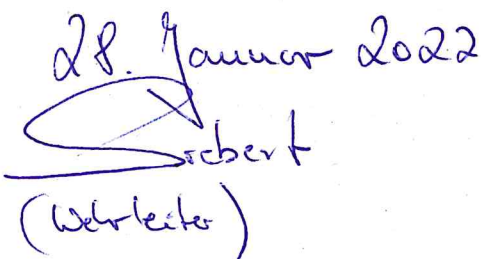 28. Januar 2022
Siebert
(Wehrleiter)